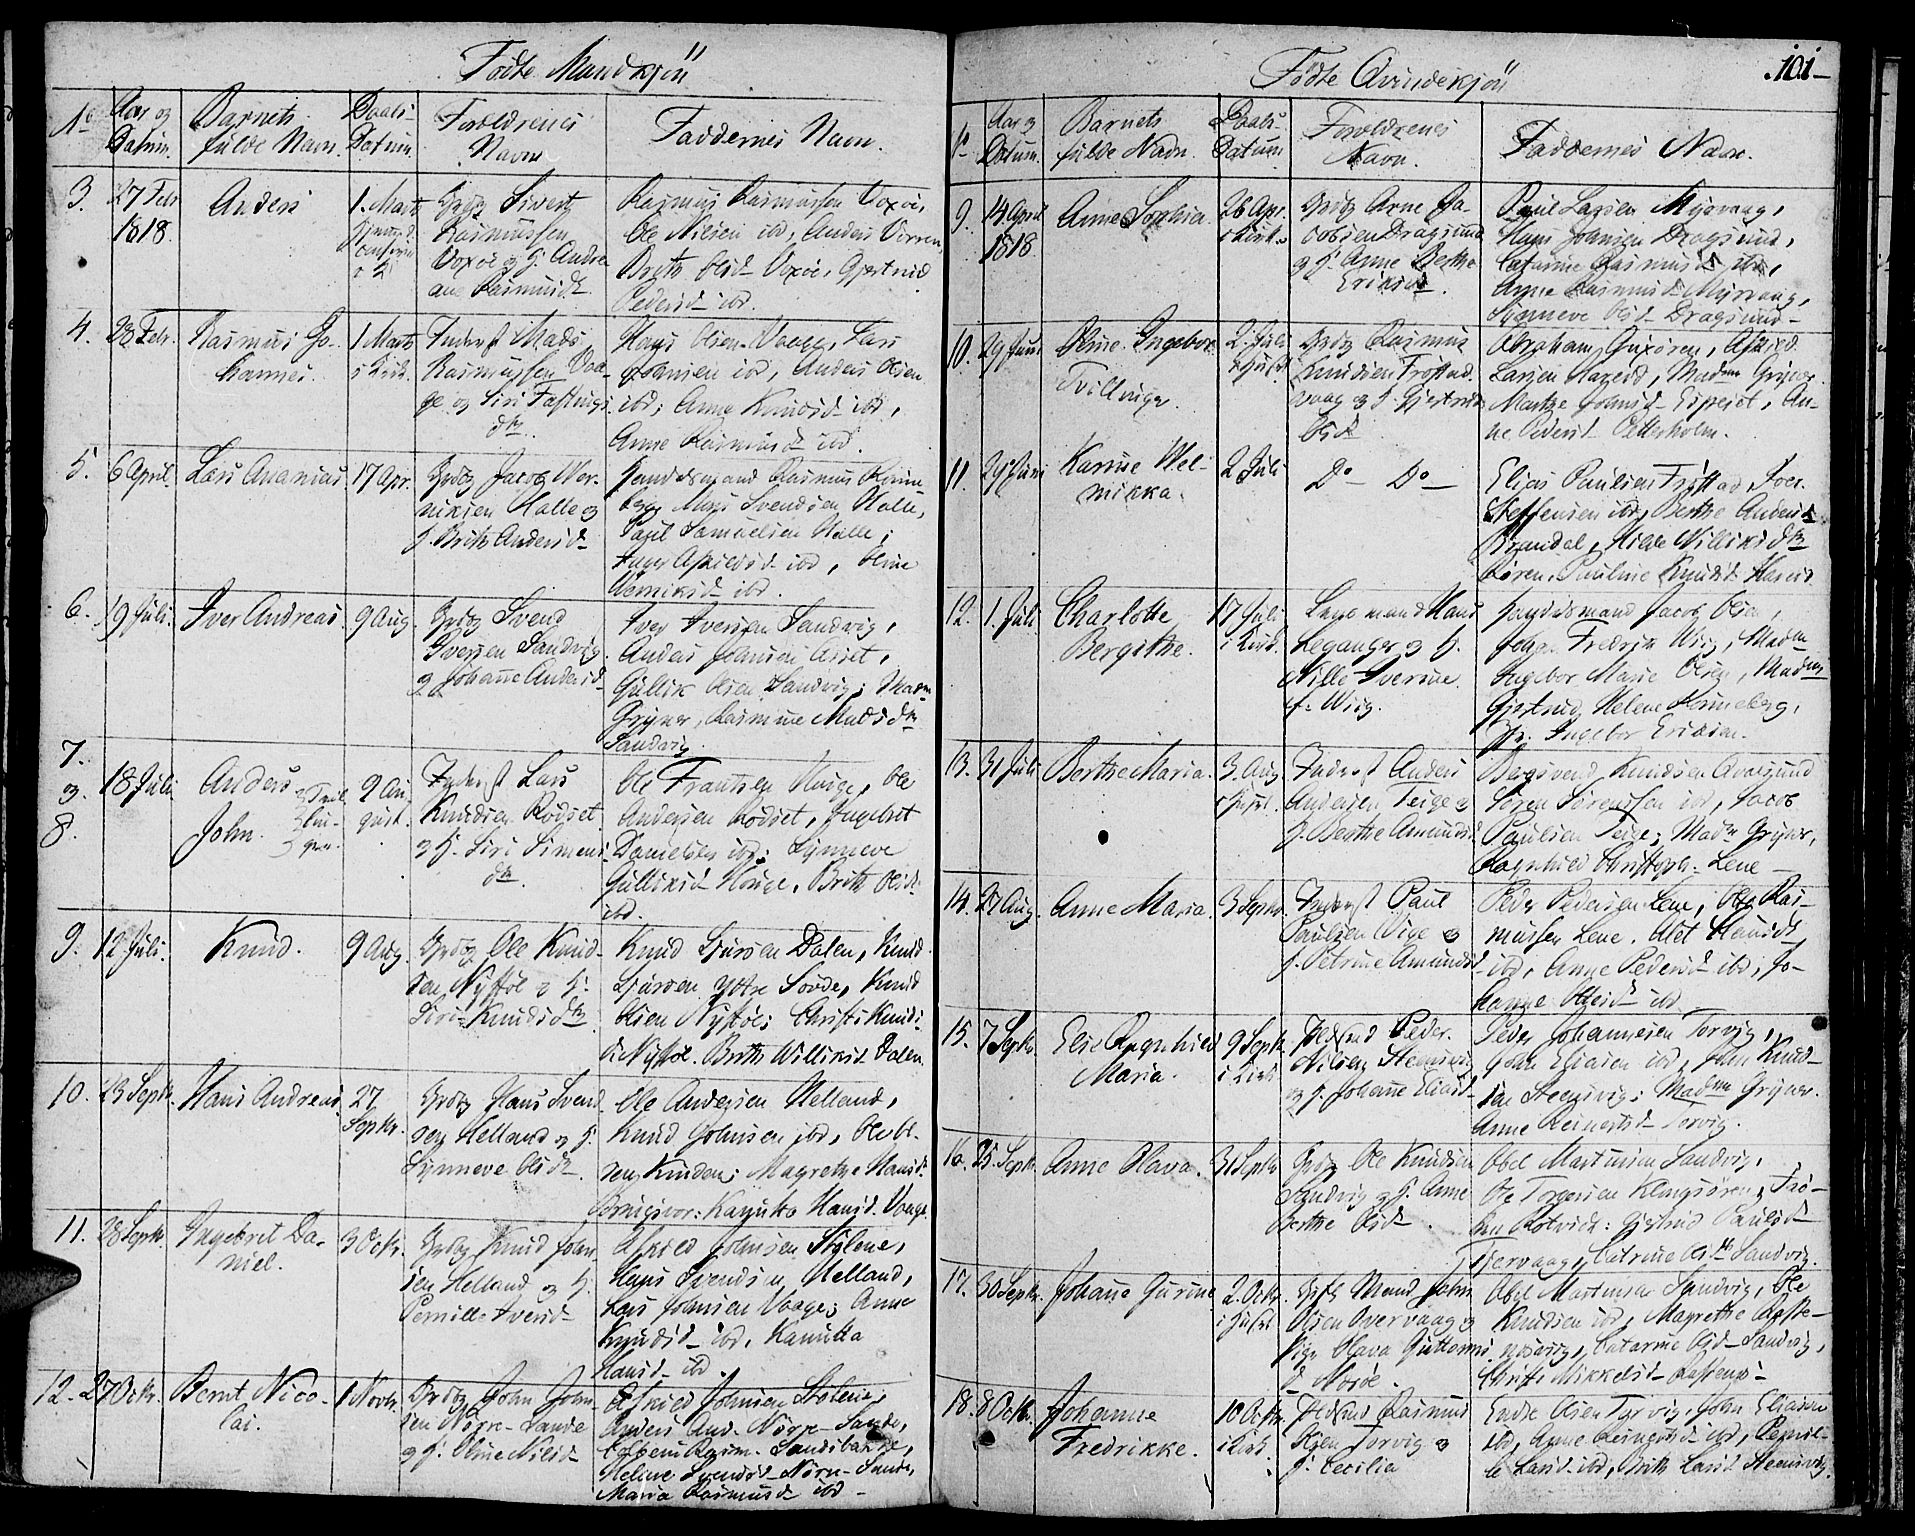 Fødte Mandkjøn
No
Aar og Datum.
Barnets fulde Navn.
Daabs-Datum.
Forældrenes Navn
Faddernes Navn.
3.
27 Febr 1818.
Anders
1. Marts
Grdbr Sivert Rasmussen
Voxøe og H. Andrea
ane Rasmusdt
Rasmus Rasmussen Voxøe,
Ole Nilsen ibd, Anders
Brith Olsd Voxøe, Gjertrud
Pedersd ibd.
4.
28 Febr.
Rasmus Jo-
hannes.
1 Marts
i Kirk.
Inderst Mads
Rasmussen Vaa-
ge og Siri Fastings
dtr
Hans Olsen Vaage, Lars
Johnsen ibd, Anders Olsen
ibd, Anne Knudsd ibd,
Anne Rasmusd ibd.
5.
6 April.
Lars Ananias
17 Apr.
Grdbr Jacob Wer-
niksen Halle og
H. Brith Andersd
Sandsmand Rasmus Rønne-
berg, Mons Svendsen Halle,
Paul Samuelsen Halle;
Inger Askildsd ibd, Oline
Werniksd ibd.
6.
19 Juli.
Iver Andreas
9 Aug
Grdbr Svend
Iversen Sandvig
og Johanne Andersd
Iver Iversen Sandvig,
Anders Johnsen Aaset,
Gullik Olsen Sandvig; Madm
Gryner, Rasmine Madsdtr
Sandvig.
7.
og
8.
18 Juli
Anders
John.
Tvil
lin-
ger.
9 Au
gust.
Inderst Lars
Knudsen Rødset
og H. Siri Simens
dtr.
Ole Frantsen Houge, Ole
Andersen Rødset, Ingebret
Danielsen ibd; Synneve
Gulliksd Houge, Brith Olsd
ibd.
9.
12 Juli.
Knud.
9 Aug.
Grdbr Ole Knud-
sen Nystøl og H.
Siri Knudsdtr
Knud Sjursen Dalen, Knud
Sjursen Ytre Sovde, Knud
Olsen Nystøl; Christi Knuds-
d Nystøl. Brith Williksd Dalen
10.
23 Septr.
Hans Andreas
27
Septr.
Grdbr Hans Svend
sen Helland og H.
Synneve Olsdt
Ole Andersen Helland,
Knud Johnsen ibd, Ole Ol-
sen Kinden; Magrethe Hansdt
Kanutta Hansd. Vaage
11.
28 Septr.
Ingebret Da-
niel.
3 Octr.
Grdbr Knud John
sen Helland og H.
Pernille Iversd
Askild Johnsen Støtene,
Hans Svendsen Helland,
Lars Johnsen Vaage; Anne
Knudsd ibd, Kanutta
Hansd ibd.
12.
27 Octr.
Bernt Nico-
lai.
1 Novbr.
Grdbr John John
sen Nørre-Sande
og H. Oline Nilsd
Askild Johnsen Støtene,
Anders And. Nørre-Sande,
Rasm. Sandsbakke,
Helene Svendsd Nørre-Sande,
Maria Rasmusd ibd
Fødte Qvindekjøn
101
No
Aar og Datum.
Barnets fulde Navn.
Daabs-Datum
Forældrenes Navn.
Faddernes Navn.
9.
14 April 1818
Anne Sophia
26 Apr.
i Kirk.
Grdbr Arne Ja-
cobsen Dragsund
og H. Anne Berthe
Eriksd.
Poul Larsen Myrvaag,
Hans Johnsen Dragsund,
Catarine Rasmusd ibd,
Anne Rasmusd Myrvaag,
Synneve Olsd Dragsund
10.
29 Juni
Oline Ingebor
Tvillinge.
2 Juli
i Huset
Grdbr Rasmus
Knudsen Trøstad
vaag og H. Gjertrud
Olsd
Abraham, Asmed
Larsen Hareid, Madme Gryner.
Marthe Johnsd Espeset, An-
ne Pedersd Petterholm.
11.
29 Juni
Karine Wel-
mikka.
2 Juli
Do Do
Elias Paulsen Trøstad, Iver
Steffensen ibd, Berthe Andersd
Brandal, Hilde Williksdtr
Røren, Pauline Knudsd Hareid
12.
1. Juli
Charlotte
Bergithe.
17 Juli
i Kirk.
Lensmand Hans
Leganger og H.
Nille Iverine
f. Wiig.
Sandsmand Jacob Olsen,
Johan Fredrik Wiig, Madm
Ingebor Marie Olsen, Madm
Gjertrud Helene Rønneberg,
Jfr. Ingebor Ericsen.
13.
31 Juli
Berthe Maria.
3. Aug
i Huset
Inderst Anders
Andersen Teige og
H. Berthe Amundsd
Bergsvend Knudsen Qvalsund
Søren Sørensen ibd, Jacob
Paulsen Teige; Madm Gryner,
Ragnhild Christophd. Lene
14.
27 Aug.
Anne Maria.
3 Septr.
Inderst Paul
Paulsen Wige og
H. Petrine Amundsd
Peder Pedersen Lene, Ole Ras-
mussen Lene, Alet Hansdt
ibd, Anne Pedersd ibd, Jo-
hanne Olsd ibd
15.
7 Septr.
Else Ragnhild
Maria.
9 Septr.
i Kirk
Peder
Nilsen Steensvig
og H. Johanne Eliasd
Peder Johannesen Torvig,
John Eliasen ibd, John Knud-
sen Steensvig; Madme Gryner.
Anne Reinertsd Torvig.
16.
25 Septr.
Anne Olava.
31 Septr
Grdbr Ole Knudsen
Sandvig og H. Anne
Berthe Olsdt.
Abel Martinsen Sandvig,
Ole Torgersen Klungsøren,
Rotvid: Gjertrud Paulsd
Tjervaag, Catrine Olsdtr Sandvig
17.
30 Septr.
Johanne Gurine
2. Octr.
i Huset
Gift Mand John
Olsen Overvaag og
Pige Olava Guttorms
d Norøe.
Abel Martinsen Sandvig, Ole
Knudsen ibd, Magrethe Raste-
nesvig, Catarine Olsd Sandvig,
Christi Mikkelsd
18.
8 Octr.
Johanne
Fredrikke.
10 Octr.
i Kirk
Rasmus
Torvig og
H. Cecilia
Endre Olsen Torvig, John Eliasen
ibd, Anne Reinertsd ibd, Pernil-
le Larsd ibd, Brith Larsd Steensvig